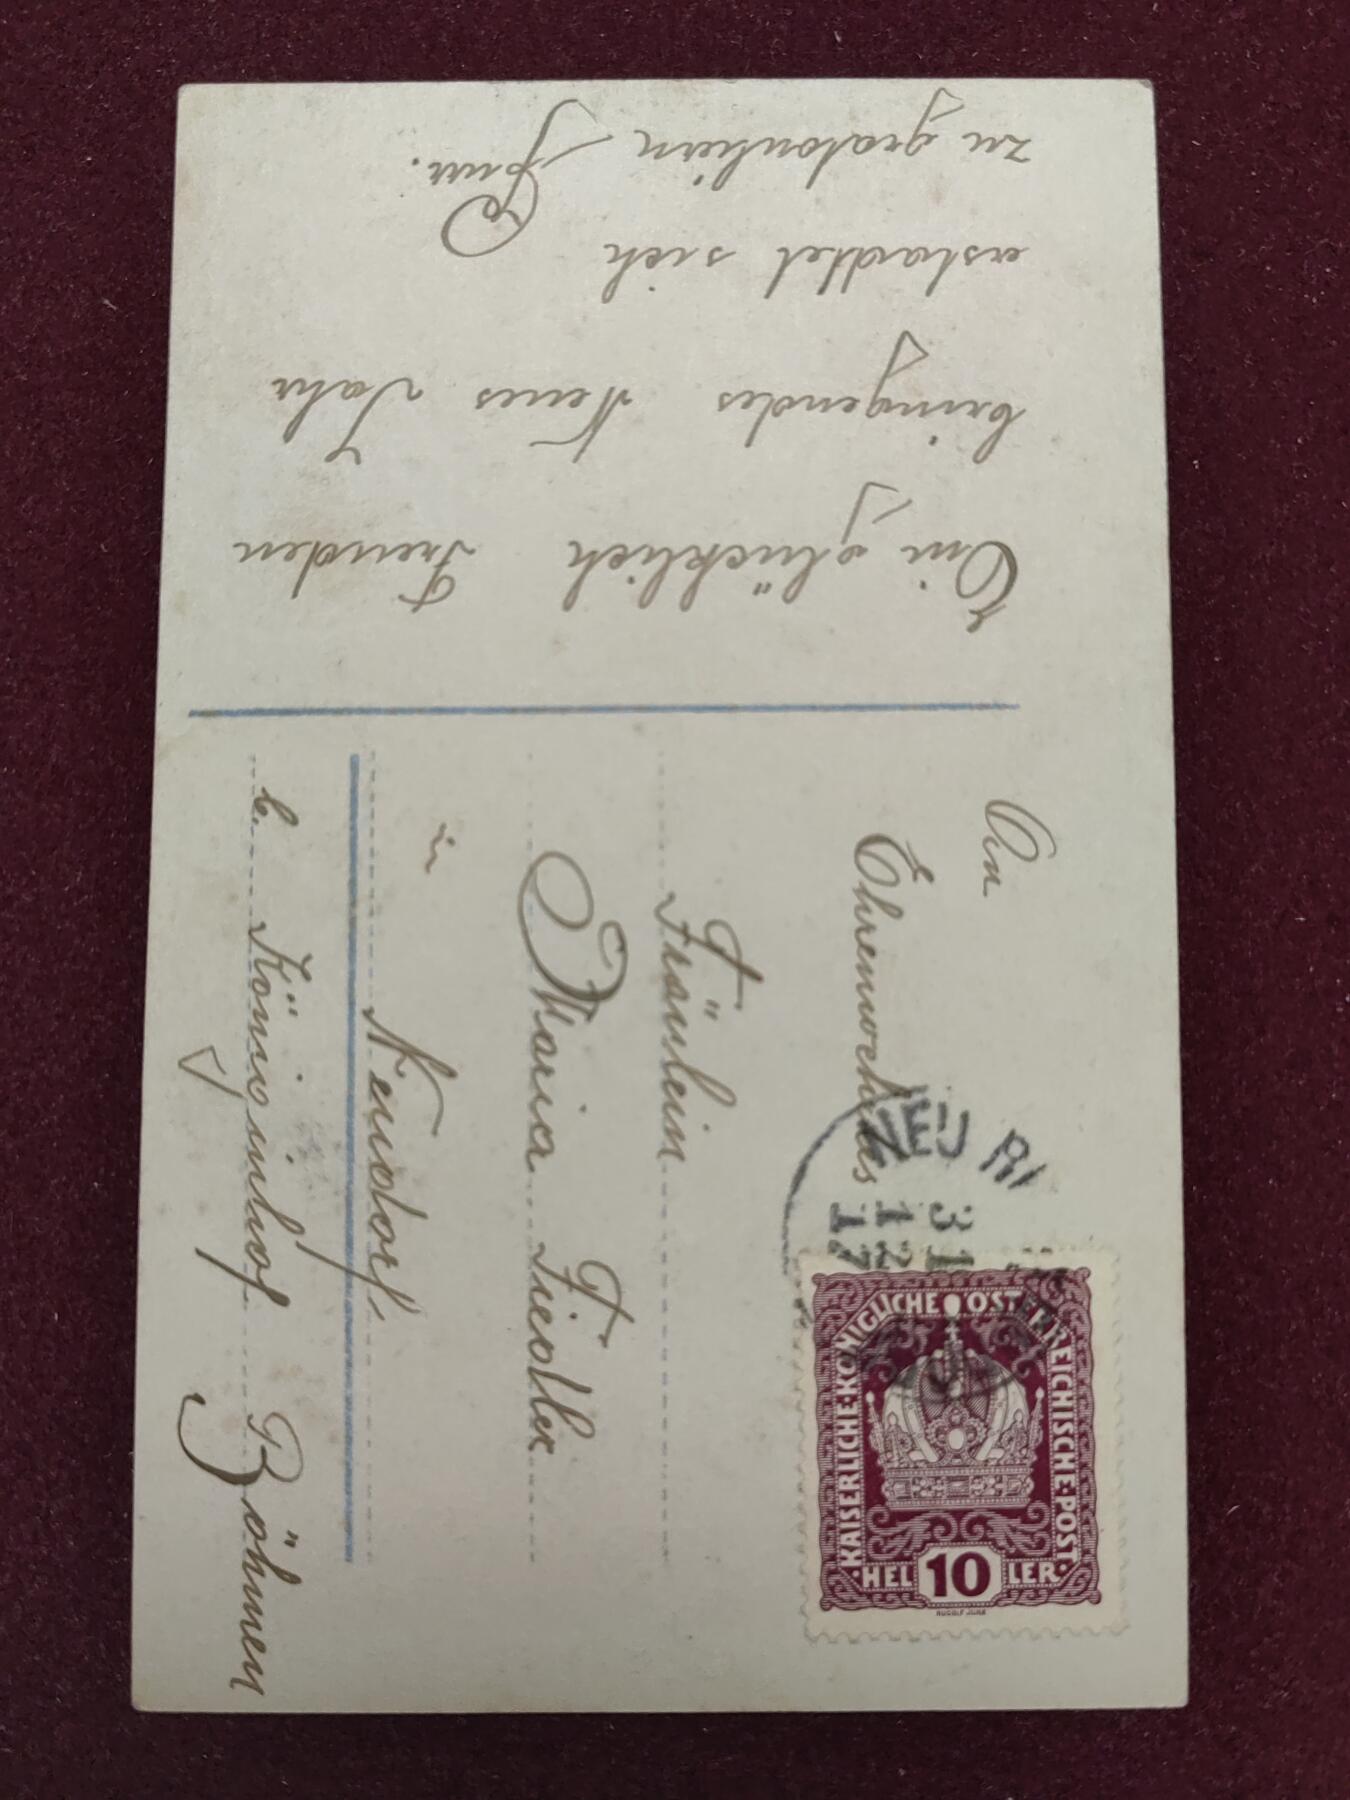 Ein glücklich Freuden
bringendes Neues Jahr
erstadtet sich
zu gratoulieren
An
Ehrenwertes
Fräulein
Maria Fiedler
in
Neudorf,
b. Königinhof Böhmen
NEU
31
12
17
KAISERLICHE·KÖNIGLICHE ÖSTERREICHISCHE·POST·
·HEL 10 LER·
RUDOLF JUNK